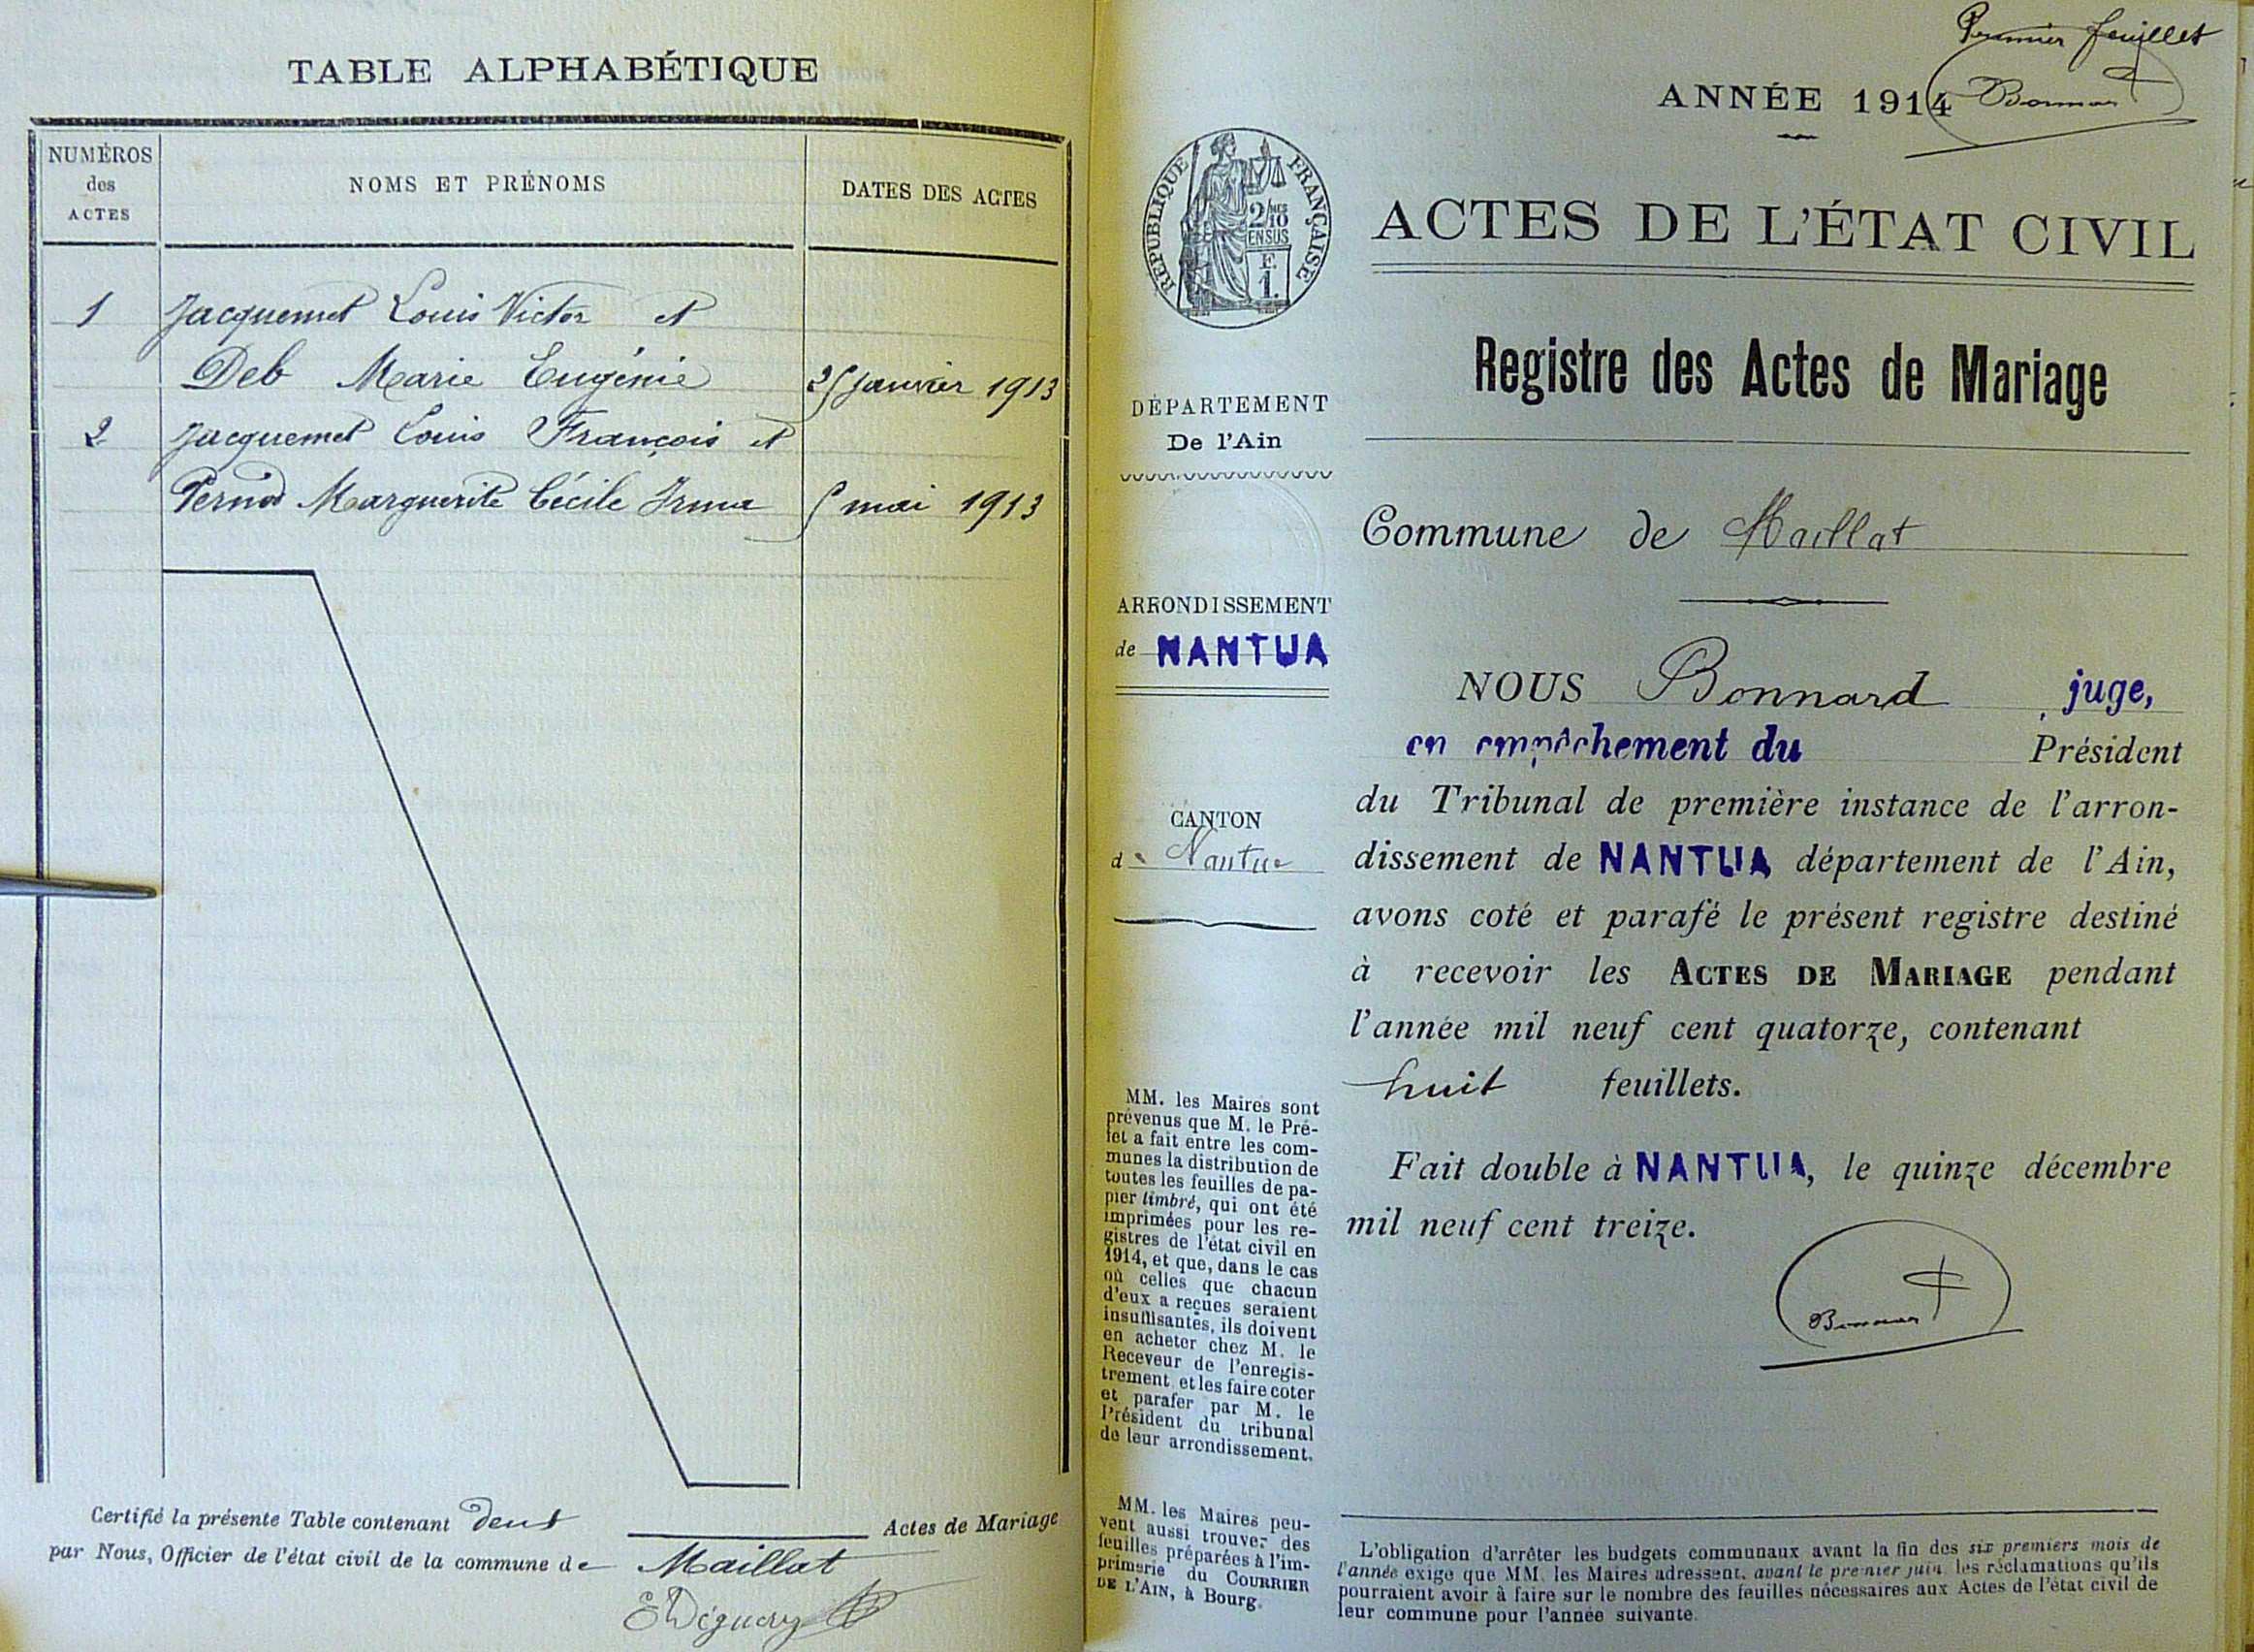 TABLE ALPHABÉTIQUE
NUMÉROS
des
ACTES
NOMS ET PRÉNOMS
DATES DES ACTES
1 Jacquemet Louis Victor et
Deb Marie Eugénie 25 janvier 1913
2 Jacquemet Louis François et
Pernod Marguerite Cécile Irma 5 mai 1913
Certifié la présente Table contenant deux Actes de Mariage
par Nous, Officier de l'état civil de la commune de Maillat
Premier feuillet
ANNÉE 1914
RÉPUBLIQUE FRANÇAISE
2/MES
10
EN SUS
F.
1.
ACTES DE L'ÉTAT CIVIL
Registre des Actes de Mariage
DÉPARTEMENT
De l'Ain
Commune de Maillat
ARRONDISSEMENT
de NANTUA
CANTON
de Nantua
NOUS Bonnard juge,
en empêchement du Président
du Tribunal de première instance de l'arron-
dissement de NANTUA département de l'Ain,
avons coté et parafé le présent registre destiné
à recevoir les ACTES DE MARIAGE pendant
l'année mil neuf cent quatorze, contenant
huit feuillets.
Fait double à NANTUA, le quinze décembre
mil neuf cent treize.
MM. les Maires sont
prévenus que M. le Pré-
fet a fait entre les com-
munes la distribution de
toutes les feuilles de pa-
pier timbré, qui ont été
imprimées pour les re-
gistres de l'état civil en
1914, et que, dans le cas
où celles que chacun
d'eux a reçues seraient
insuffisantes, ils doivent
en acheter chez M. le
Receveur de l'enregis-
trement et les faire coter
et parafer par M. le
Président du tribunal
de leur arrondissement.
MM. les Maires peu-
vent aussi trouver des
feuilles préparées à l'im-
primerie du COURRIER
DE L'AIN, à Bourg.
L'obligation d'arrêter les budgets communaux avant la fin des six premiers mois de
l'année exige que MM. les Maires adressent, avant le premier juin, les réclamations qu'ils
pourraient avoir à faire sur le nombre des feuilles nécessaires aux Actes de l'état civil de
leur commune pour l'année suivante.